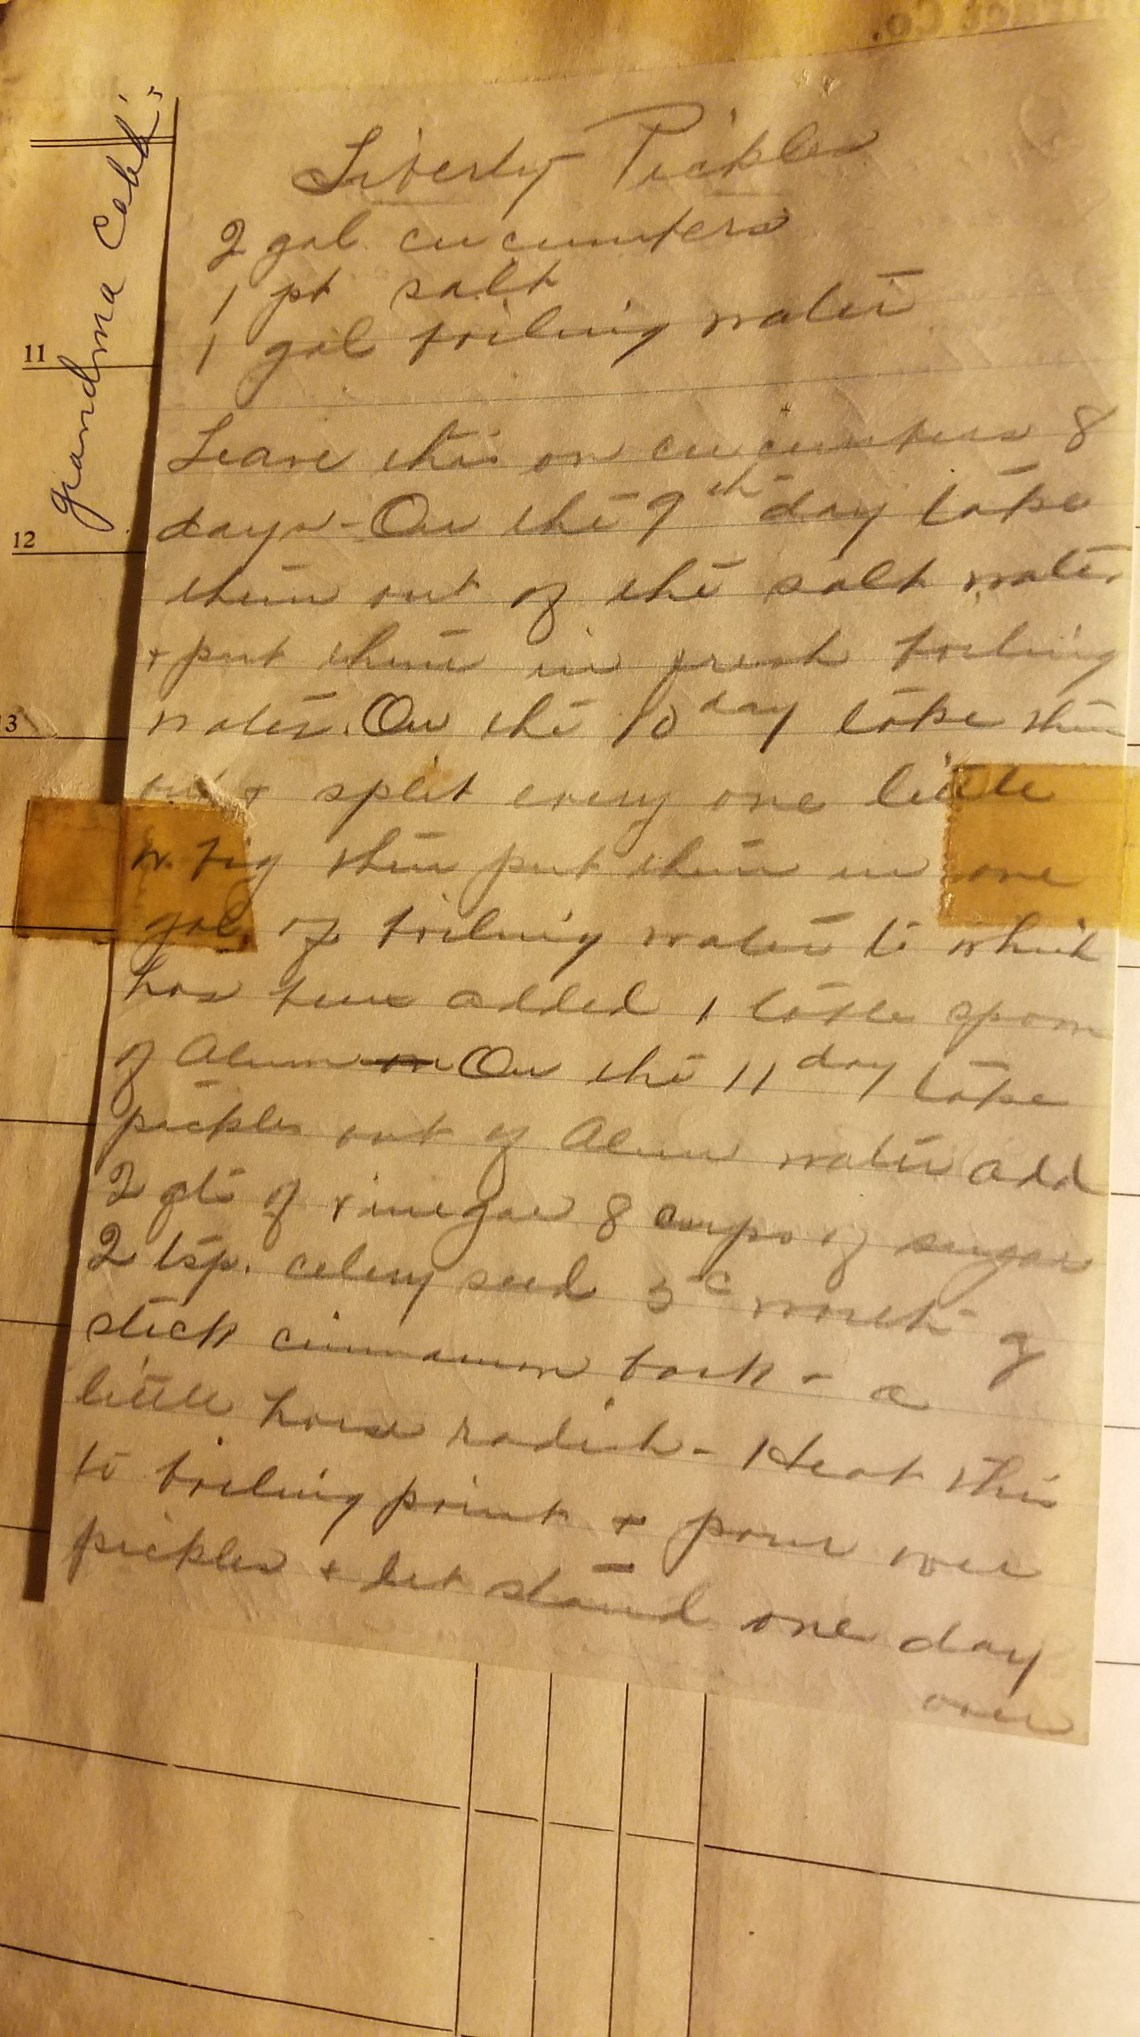 Co.
Grandma Cobb's
Liberty Pickles
2 gal. cucumbers
1 pt salt
1 gal boiling water
11
Leave this on cucumbers 8
days - On the 9th day take
12
them out of the salt water
+ put them in fresh boiling
water. On the 10 day take them
13
out + split every one little
or big then put them in one
gal of boiling water to which
has been added 1 table spoon
of Alum On the 11 day take
pickles out of Alum water add
2 qts of vinegar 8 cups of sugar
2 tsp. celery seed 5c worth of
stick cinnamon bark - a
little horse radish - Heat this
to boiling point + pour over
pickles + let stand one day
over